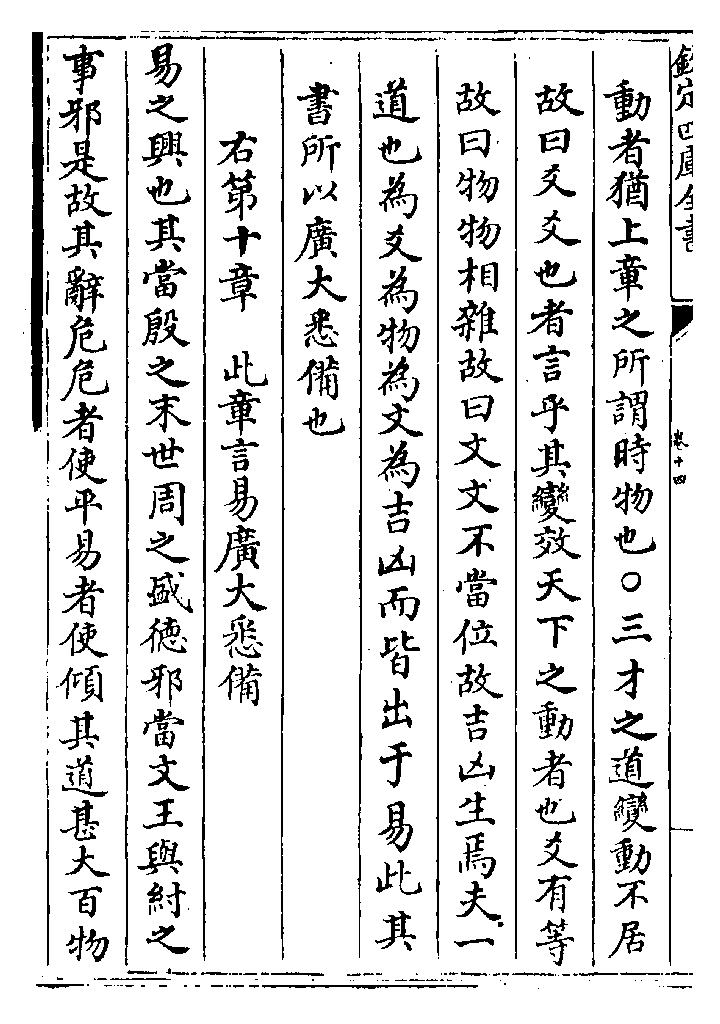 欽定四庫全書
卷十四
動者猶上章之所謂時物也○三才之道變動不居
故曰爻爻也者言乎其變效天下之動者也爻有等
故曰物物相雜故曰文文不當位故吉凶生焉夫一
道也為爻為物為文為吉凶而皆出于易此其
書所以廣大悉備也
右第十章　此章言易廣大悉備
易之興也其當殷之末世周之盛德邪當文王與紂之
事邪是故其辭危危者使平易者使傾其道甚大百物